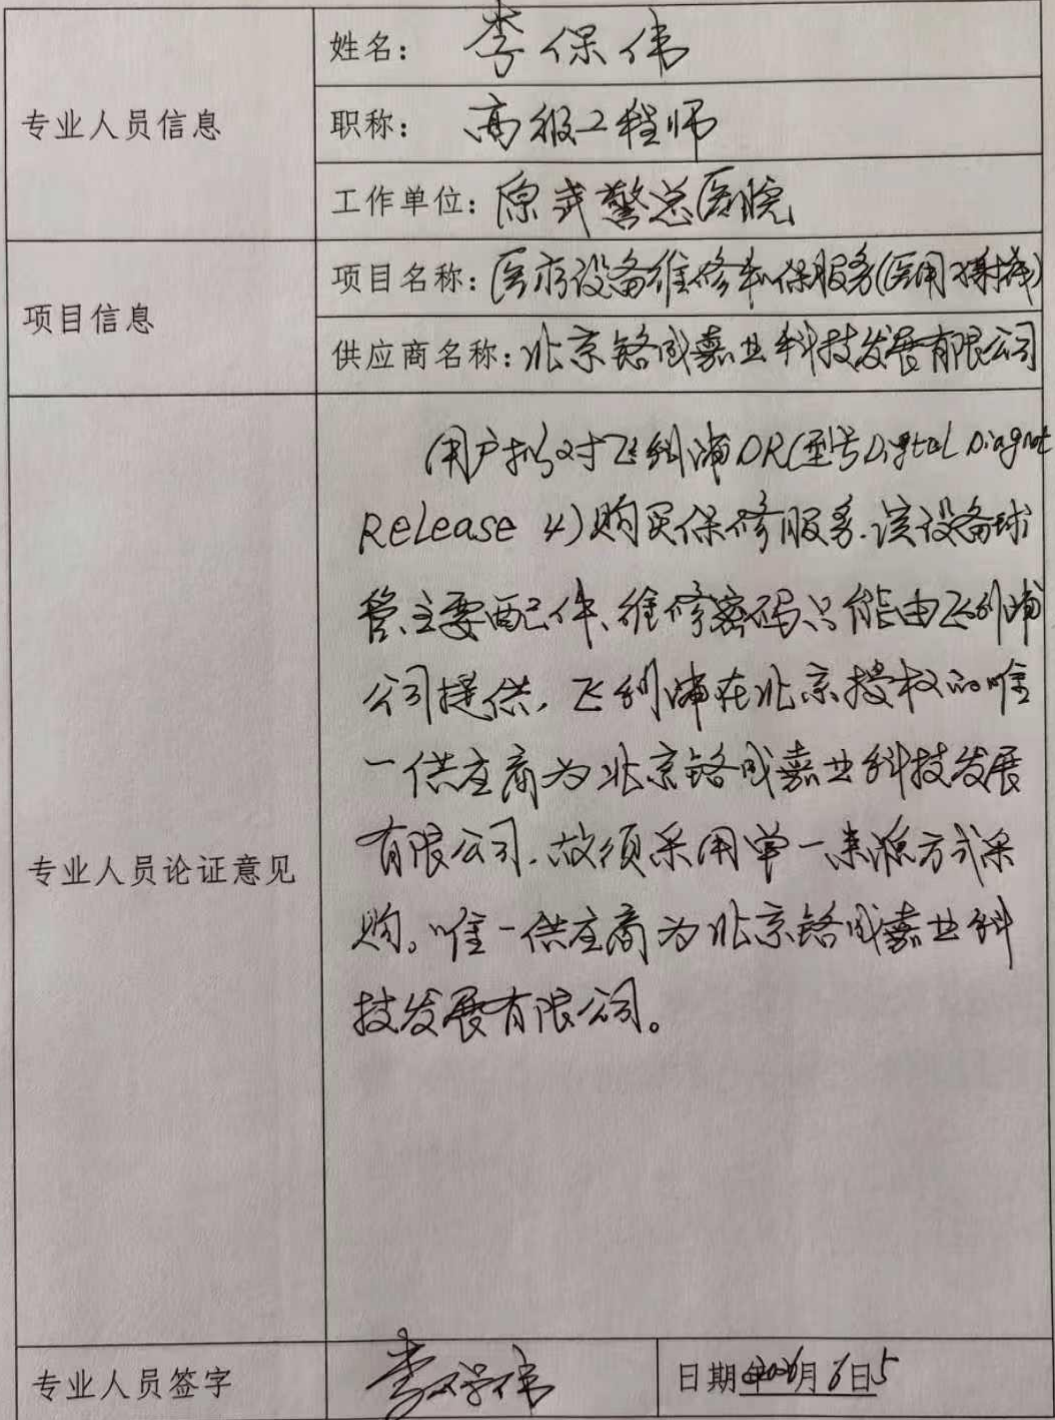 专业人员信息
姓名：李保伟
职称：高级工程师
工作单位：原武警总医院
项目信息
项目名称：医疗设备维修和保服务(医用
供应商名称：北京铭成嘉业科技发展有限公司
专业人员论证意见
用户拟对飞利浦DR(型号Digital Diagnost
Release 4)购买保修服务.该设备球
管、主要配件、维修密码只能由飞利浦
公司提供，飞利浦在北京授权的唯
一供应商为北京铭成嘉业科技发展
有限公司.故须采用单一来源方式采
购。唯一供应商为北京铭成嘉业科
技发展有限公司。
专业人员签字
李保伟
日期 年 月6日5